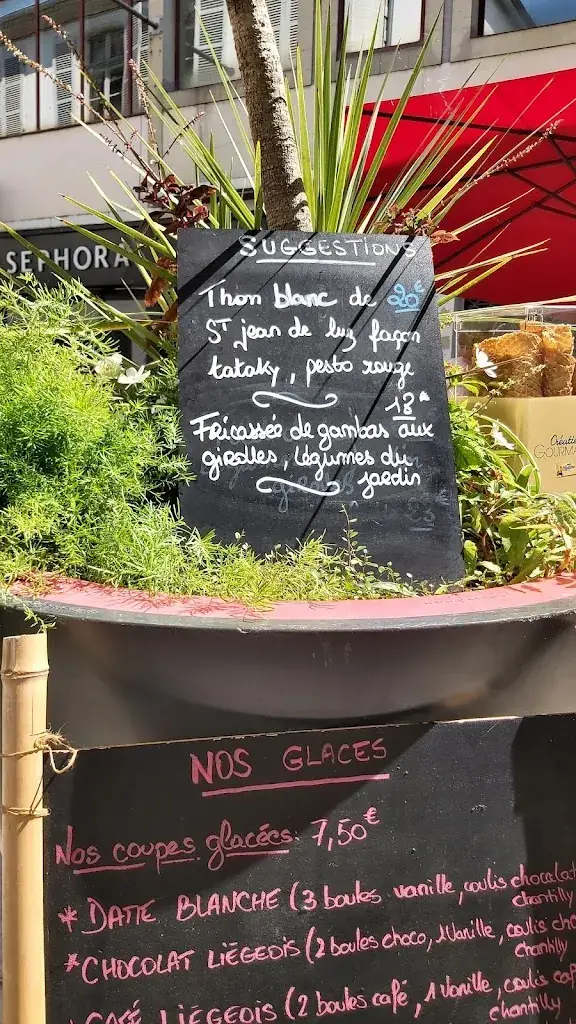 SEPHORA
SUGGESTIONS
Thon blanc de 20€
St jean de luz façon
tataky, pesto rouge
18€
Fricassée de gambas aux
girolles, légumes du
jardin
GOURMA
NOS GLACES
Nos coupes glacées: 7,50€
* DATTE BLANCHE (3 boules vanille, coulis chocolat
chantilly
* CHOCOLAT LIÉGEOIS (2 boules choco, 1 Vanille, coulis cho
chantilly
CAFÉ LIÉGEOIS (2 boules café, 1 Vanille, coulis caf
chantilly